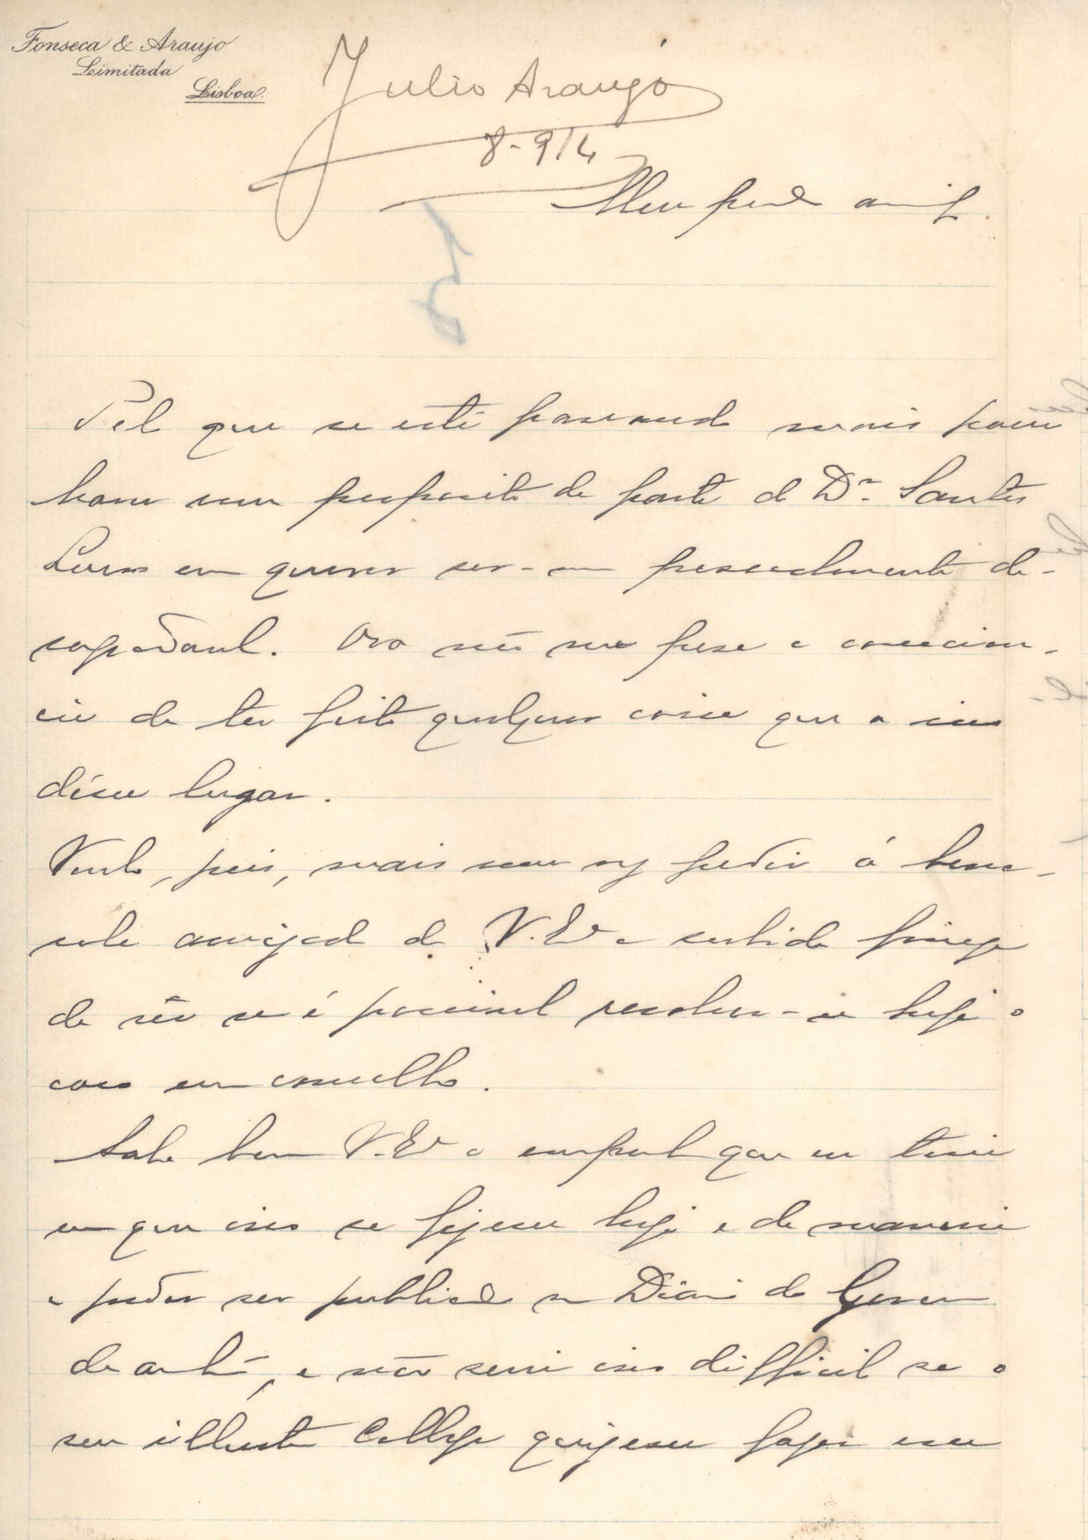 Fonseca & Araujo
Limitada
Lisboa.
Julio Araujo
8-914
Meu presado amigo.
Pelo que se está passando mais parece
haver um proposito da parte do Dr. Santos
Lucas em querer ser-me pessoalmente de-
sagradavel. Ora não me pesa a conscien-
cia de ter feito qualquer coisa que a isso
désse lugar.
Venho, pois, mais uma vez pedir á bene-
vola amizade de V. Exa a subida fineza
de vêr se é possivel resolver-se hoje o
caso em conselho.
Sabe bem V. Exa o empenho que eu tinha
em que isso se fizesse hoje e de maneira
a poder ser publicado no Diario do Governo
de amanhã, e não seria isso difficil se o
seu illustre Collega quizesse fazer esse